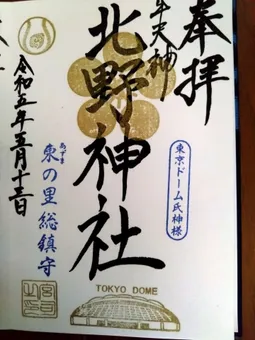 奉拝
牛天神
北野神社
東京ドーム氏神様
あずま
東の里総鎮守
令和五年五月十三日
TOKYO DOME